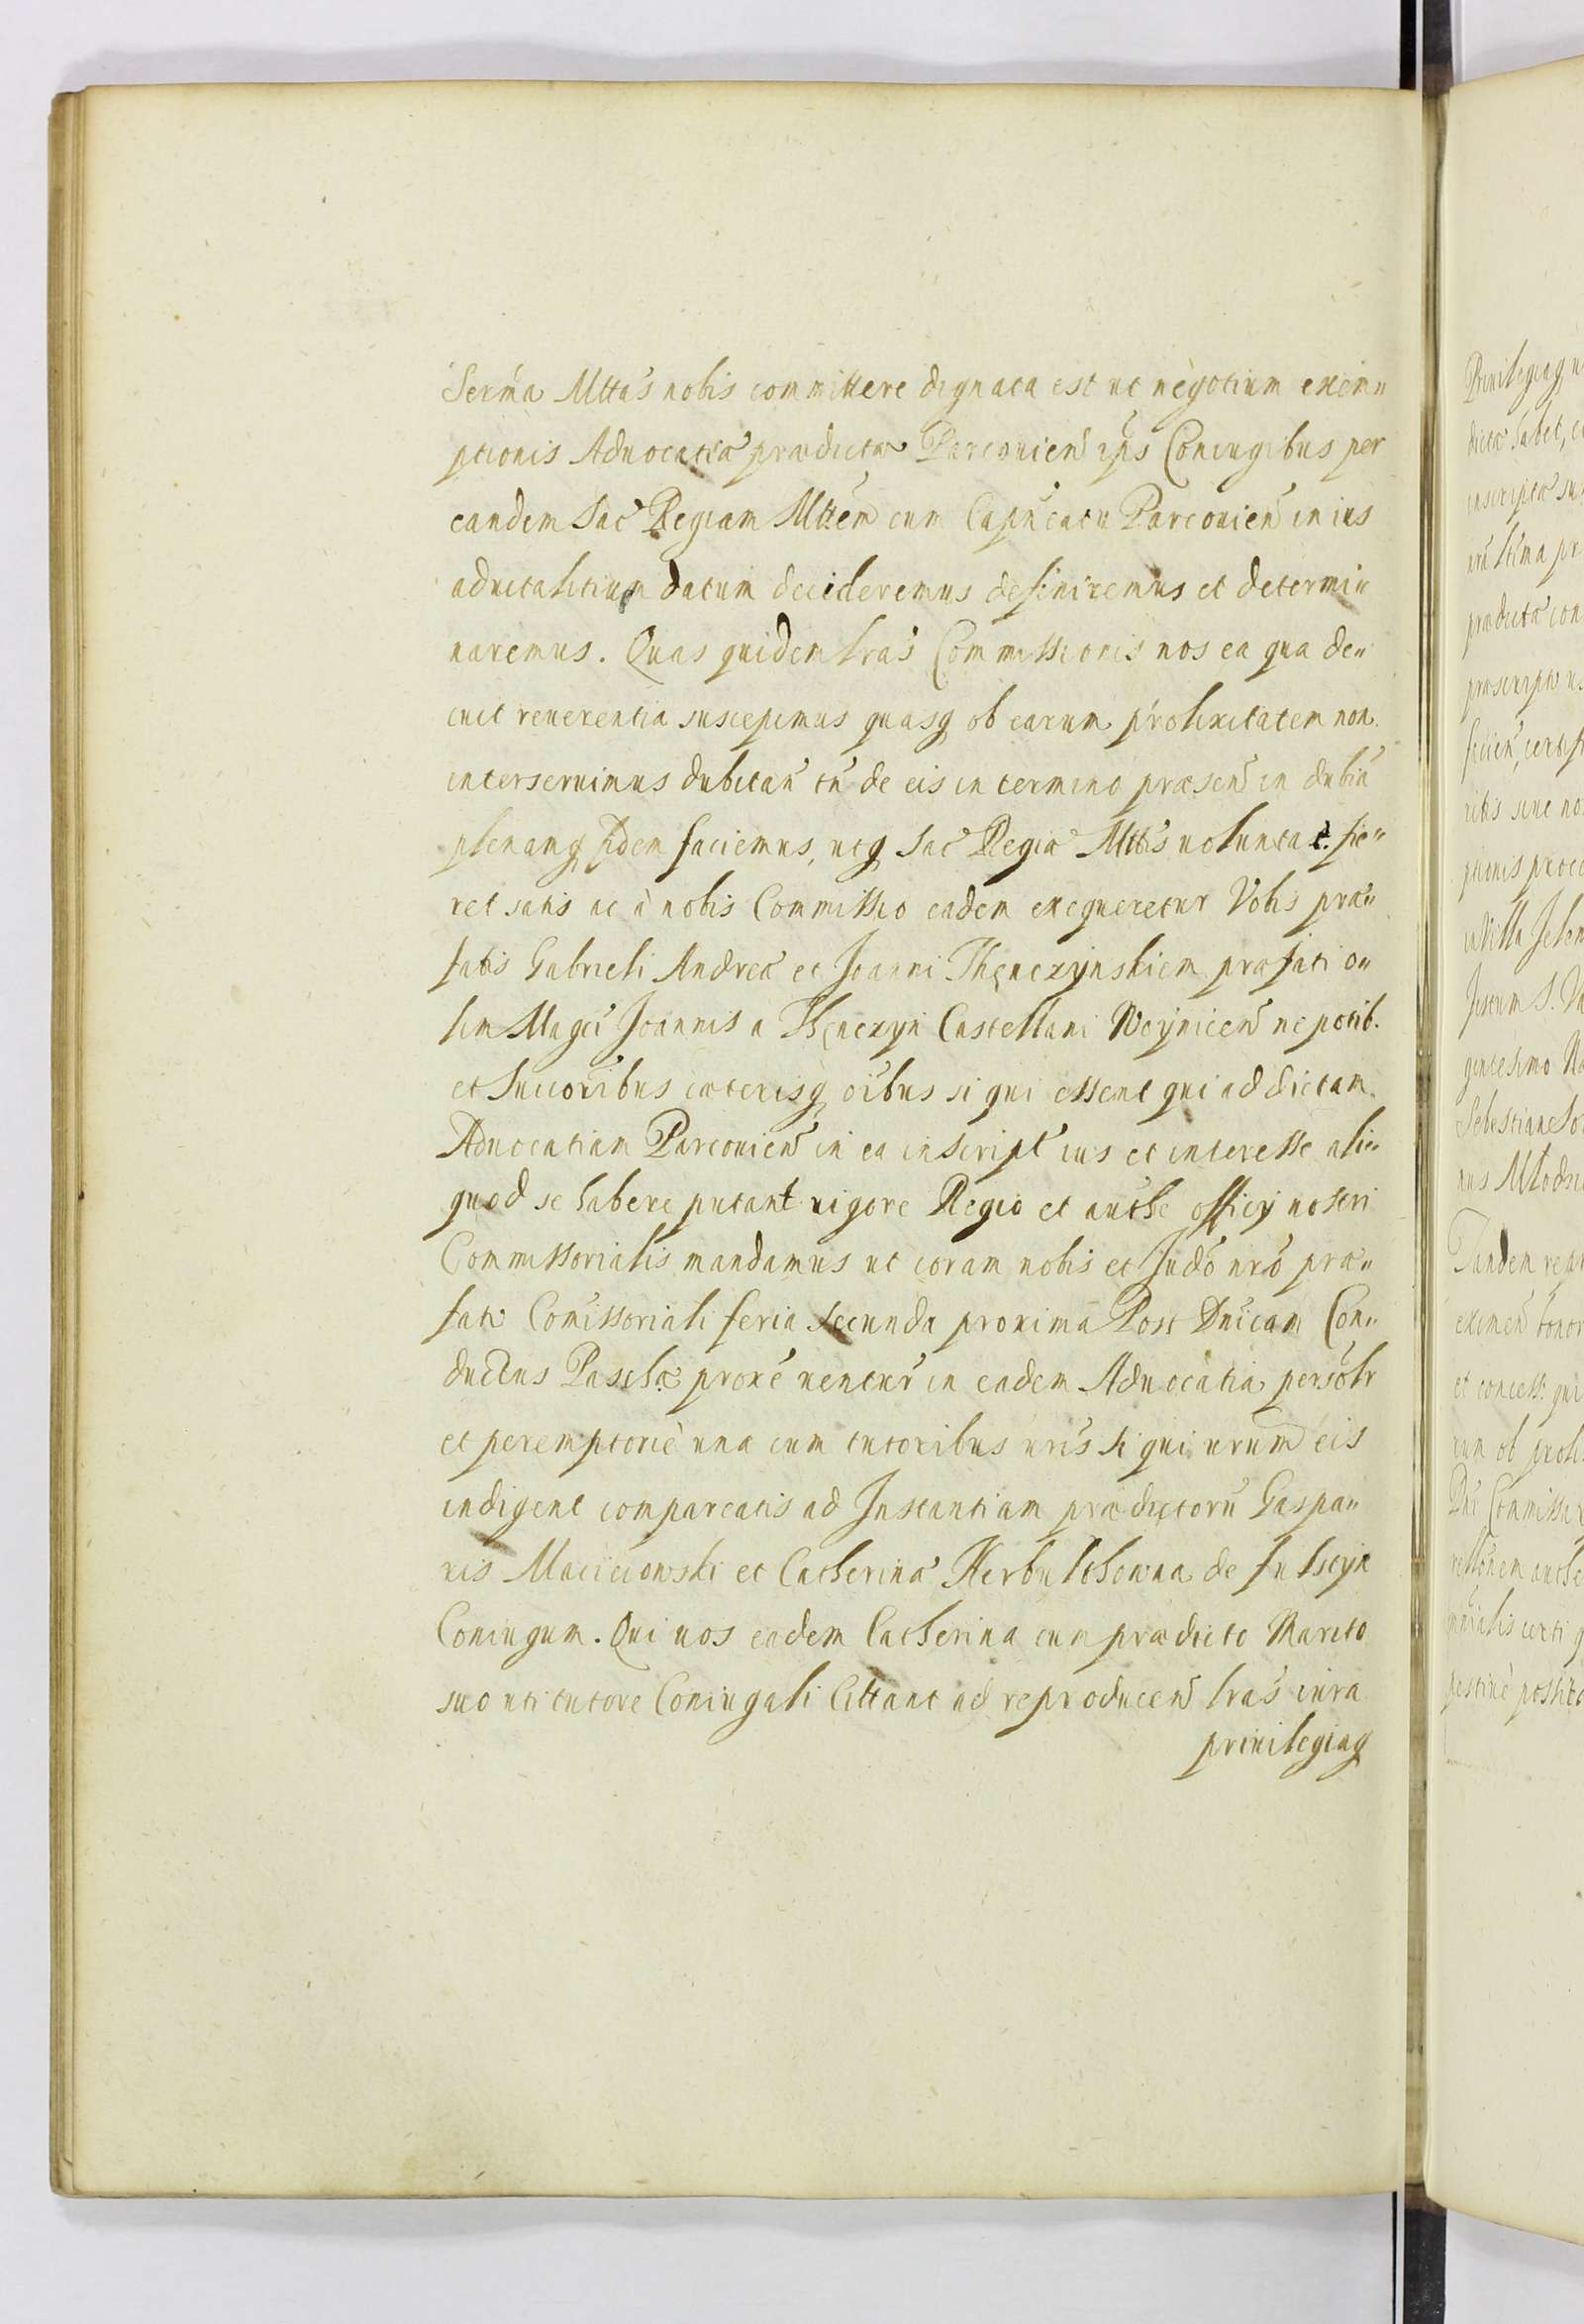 Serma Mttas nobis committere dignata est ut negotium exem„
ptionis Aduocatiæ prædictæ Parcouien ipis Coniugibus per
eandem Sac Regiam Mttem cum Capncatu Parcouien in ius
aduitalitium datum decideremus definiremus et determi„
naremus. Quas quidem lras Commissionis nos ea qua de„
cuit reuerentia suscepimus quasq ob earum prolixitatem non
interseruimus dubitan tn de eis in termino præsen in dubia
plenamq fidem faciemus, utq Sac Regiæ Mttis uoluntat. fie„
ret satis ac à nobis Commissio eadem exequeretur Vobis præ„
fatis Gabrieli Andreæ et Joanni Thęnczynskiem præfati o„
lim Magci Joannis a Thęnczyn Castellani Woynicen nepotib.
et Succoribus cæterisq oibus si qui essent qui ad dictam
Aduocatiam Parcouien in ea inscript ius et interesse ali„
quod se habere putant uigore Regio et authe officy nostri
Commissorialis mandamus ut coram nobis et Judo nro præ„
fato Comissoriali feria secunda proxima Post Dnicam Con„
ductus Paschæ proxe uentur in eadem Aduocatia persolr
et peremptoriè una cum tutoribus uris si qui urum eis
indigent compareatis ad Instantiam prædictoru Gaspa„
ris Macieiowski et Catherinæ Herbulthowna de Fulsztyn
Coniugum. Qui uos eadem Catherina cum prædicto Marito
suo uti tutore Coniugali Cittant ad reproducen lras iura
priuilegiaq